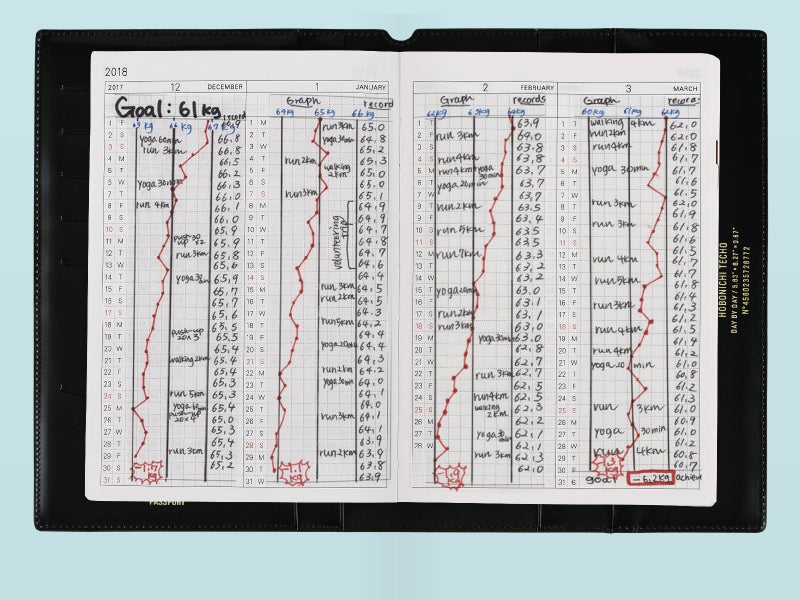 2018
2017 12 DECEMBER
Goal: 61kg
65kg 66kg 67kg record
1 F 66.9
2 S yoga 60min 66.8
3 S run 3km 66.8
4 M 66.5
5 T 66.2
6 W yoga 30min 66.3
7 T 66.0
8 F run 4km 66.1
9 S 66.0
10 S 65.9
11 M push-up 20×2 65.9
12 T run 3km 65.8
13 W 65.6
14 T yoga 65.9
15 F 65.7
16 S 65.7
17 S 65.6
18 M push-up 65.5
19 T 20×3 65.5
20 W 65.4
21 T walking 2km 65.4
22 F 65.4
23 S 65.3
24 S run 5km 65.3
25 M yoga 60min 65.4
26 T push-up 20×4 65.0
27 W 65.3
28 T 65.4
29 F run 3km 65.3
30 S 65.2
31 S
1 JANUARY
Graph record
64kg 65kg 66kg
1 M run 3km 65.0
2 T yoga 30min 64.8
3 W 65.2
4 T run 2km 65.3
5 F walking 2km 65.0
6 S 65.0
7 S run 3km 65.1
8 M 64.9
9 T 64.9
10 W volunteering trip 64.7
11 T 64.8
12 F 64.7
13 S 64.6
14 S 64.4
15 M run 3km 64.5
16 T run 2km 64.5
17 W 64.3
18 T run 5km 64.2
19 F 64.4
20 S yoga 20min 64.4
21 S 64.3
22 M run 2km 64.2
23 T yoga 30min 64.0
24 W 64.1
25 T 64.0
26 F run 3km 64.1
27 S 64.1
28 S 63.9
29 M run 2km 63.9
30 T 63.8
31 W 63.9
2 FEBRUARY
Graph records
63kg 64kg
1 T 63.9
2 F run 3km 64.0
3 S 63.8
4 S run 4km 63.8
5 M run 4km yoga 30min 63.7
6 T yoga 20min 63.7
7 W 63.7
8 T run 2km 63.5
9 F 63.4
10 S run 5km 63.5
11 S 63.5
12 M run 7km 63.3
13 T 63.2
14 W 63.2
15 T yoga 63.0
16 F 63.1
17 S run 2km 63.1
18 S run 3km 63.0
19 M yoga 30min 63.0
20 T 62.8
21 W 62.7
22 T run 3km 62.7
23 F 62.5
24 S run 4km 62.5
25 S walking 2km 62.3
26 M 62.2
27 T yoga 62.1
28 W 62.1
run 3km 62.3
62.0
3 MARCH
Graph records
60kg 61kg 62kg
1 T walking 4km 62.0
2 F run 2km 62.0
3 S run 4km 61.8
4 S 61.7
5 M yoga 30min 61.7
6 T 61.6
7 W 61.5
8 T run 3km 62.0
9 F 61.9
10 S run 3km 61.8
11 S 61.6
12 M 61.5
13 T run 4km 61.7
14 W 61.7
15 T run 5km 61.8
16 F 61.4
17 S run 3km 61.3
18 S 61.2
19 M run 4km 61.5
20 T 61.4
21 W run 4km 61.2
22 T yoga 20min 61.0
23 F 60.8
24 S 61.2
25 S 61.3
26 M run 3km 61.0
27 T 60.9
28 W yoga 30min 61.0
29 T 61.2
30 F run 4km 60.8
60.7
31 S goal −6.2kg achieve
HOBONICHI TECHO
DAY BY DAY / 5.83" × 8.27" × 0.67"
N°4580235728772
PASSPORT